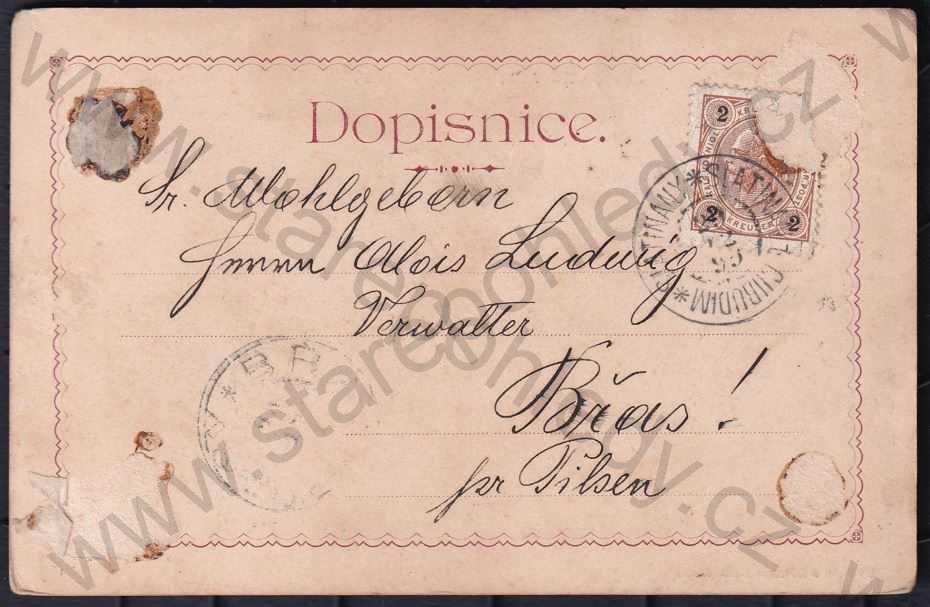 Dopisnice.
Sr. Wohlgeborn
Herrn Alois Ludwig
Verwalter
Břas!
pr Pilsen
2
2
2
KREUZER
SLATINAN
CHRUDIM
95
BR
www.starepohledy.cz
www.starepohledy.cz